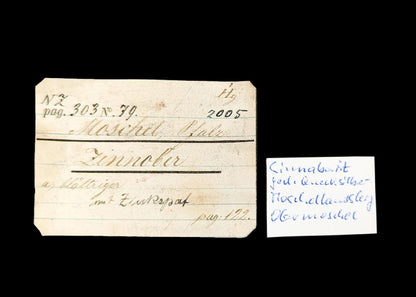 NZ Hg
pag. 303 No. 79. 2005
Moschel, Pfalz
Zinnober
a, blättriger
mit Zinkspat
pag. 122.
Cinnabarit
ged. Quecksilber
Moschellandsberg
Obermoschel